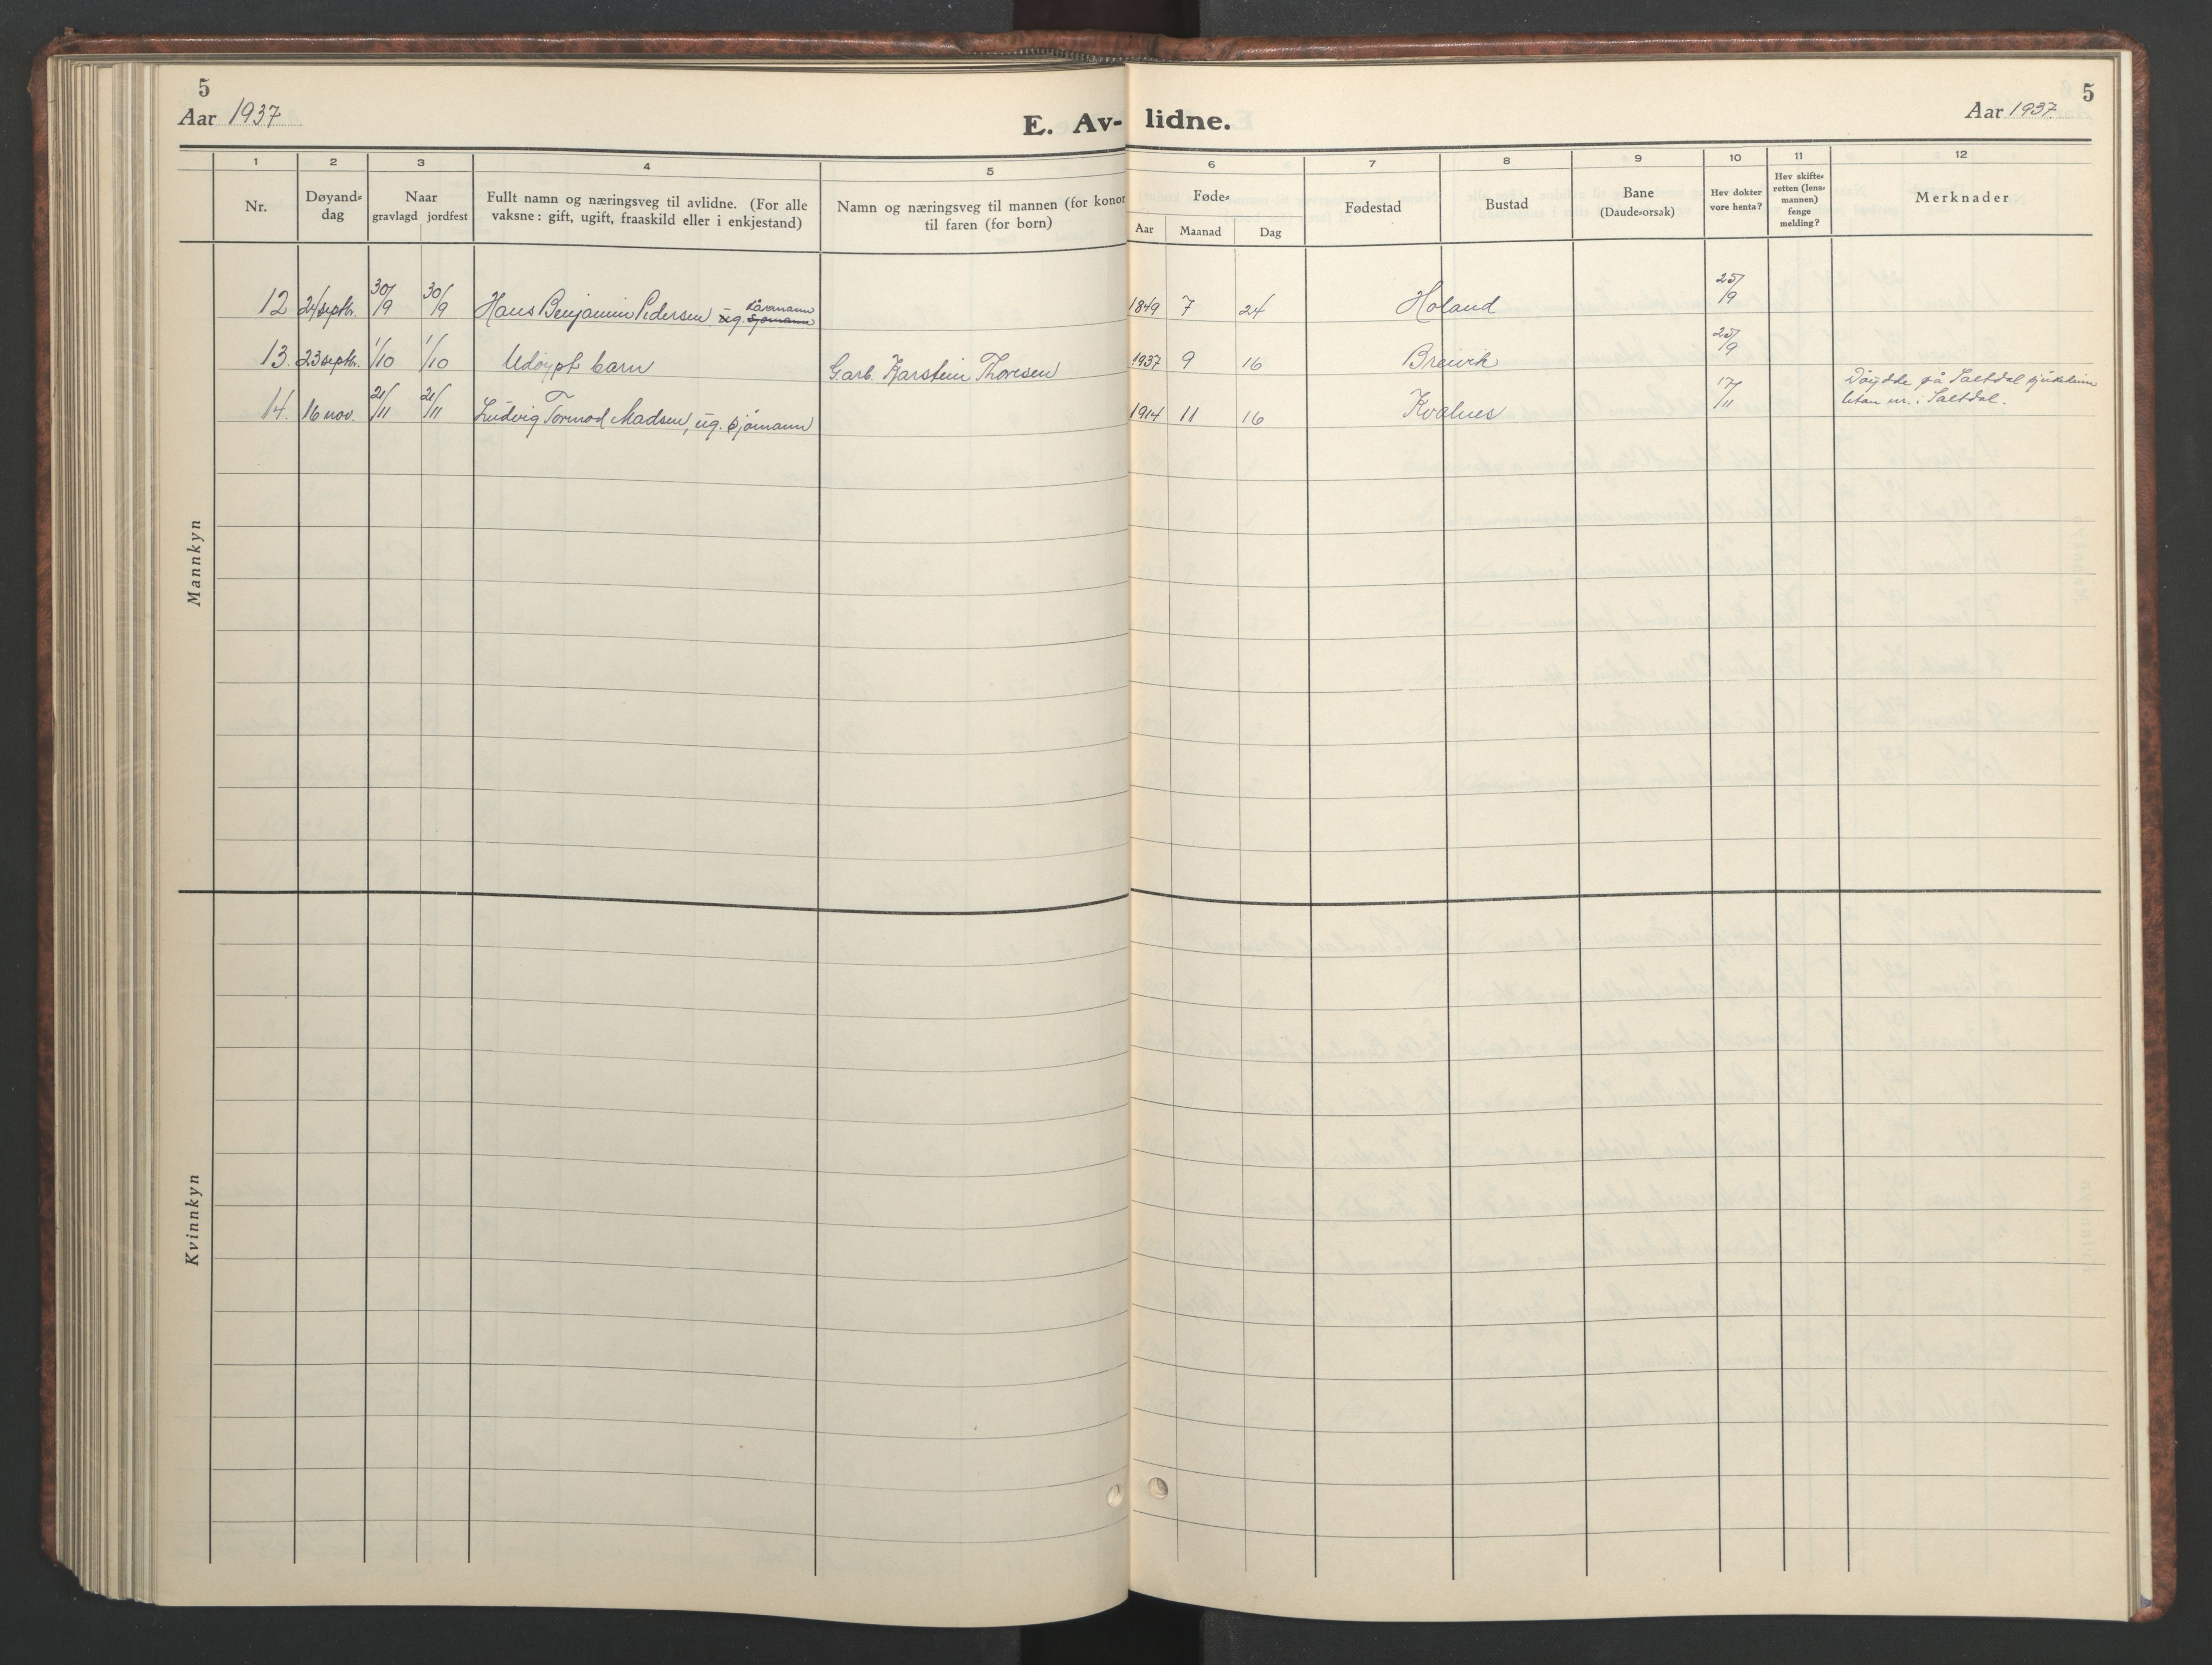 5
Aar 1937
E. Av-
lidne.
5
Aar 1937
1 2 3 4 5 6 7 8 9 10 11 12
Nr.
Døyand-
dag
Naar
gravlagd jordfest
Fullt namn og næringsveg til avlidne. (For alle
vaksne: gift, ugift, fraaskild eller i enkjestand)
Namn og næringsveg til mannen (for konor
til faren (for born)
Føde-
Aar Maanad Dag
Fødestad
Bustad
Bane
(Daude-orsak)
Hev dokter
vore henta?
Hev skifte-
retten (lens-
mannen)
fenge
melding?
Merknader
Mannkyn
kårmann
12 24 septbr. 30/9 30/9 Hans Benjamin Pedersen ug. sjømann 1849 7 24 Holand 25/9
13. 23 septbr. 1/10 1/10 Udøypt barn Garb. Karstein Thoresen 1937 9 16 Breivik 25/9
14. 16 nov. 21/11 21/11 Ludvig Tormod Madsen, ug. sjømann 1914 11 16 Kvalnes 17/11 Døydde på Saltdal sjukeheim
Utan nr. i Saltdal.
Kvinnkyn